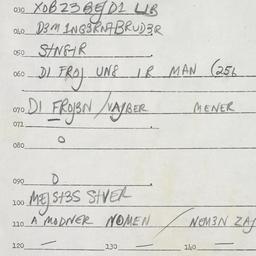 030 XOBZ3BEJD1 LIB
040 D3M 1NG3RNABRUD3R
050 S+NS+R
060 DI FROJ UN8 IR MAN (25b
070 DI FROJ3N / VAJBER MENER
071
080 O
090 O
100 MEJS+3S S+VER
110 A MODNER NOMEN / NEM3N ZAJ
120 — 130 — 140 —